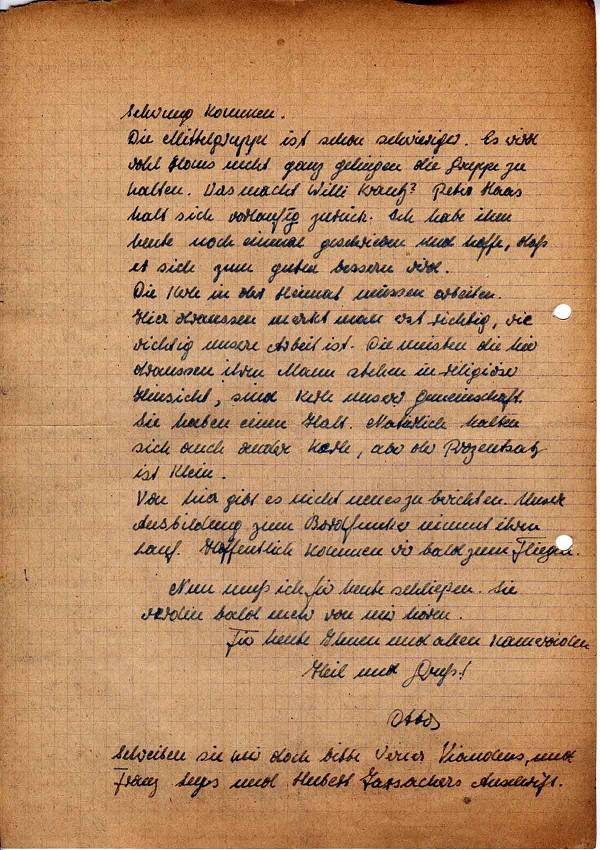 Schwung kommen.
Die Mittelgruppe ist schon schwieriger. Es wird
wohl Hans nicht ganz gelingen die Gruppe zu
halten. Was macht Willi Krantz? Peter Haas
hält sich vorläufig zurück. Ich habe ihm
heute noch einmal geschrieben und hoffe, daß
es sich zum guten bessern wird.
Die Kerle in der Heimat müssen arbeiten.
Hier draussen merkt man erst richtig, wie
wichtig unsere Arbeit ist. Die meisten die hier
draussen ihren Mann stehen in religiöser
Hinsicht, sind Kerle unserer Gemeinschaft.
Sie haben einen Halt. Natürlich halten
sich auch andere Kerle, aber der Prozentsatz
ist klein.
Von hier gibt es nicht neues zu berichten. Unsere
Ausbildung zum Bordfunker nimmt ihren
Lauf. Hoffentlich kommen wir bald zum Fliegen.
Nun muß ich für heute schließen. Sie
werden bald mehr von mir hören.
Für heute Ihnen und allen Kameraden
Heil und Gruß!
Otto
Schreiben sie mir doch bitte Viandens, und
Franz und Hubert Anschrift.